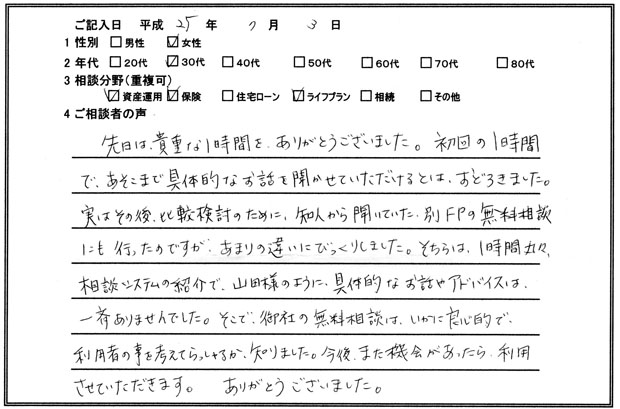 ご記入日 平成 25 年 7 月 3 日
1 性別 □男性 ☑女性
2 年代 □20代 ☑30代 □40代 □50代 □60代 □70代 □80代
3 相談分野(重複可)
☑資産運用 ☑保険 □住宅ローン ☑ライフプラン □相続 □その他
4 ご相談者の声
先日は、貴重な1時間を、ありがとうございました。初回の1時間
で、あそこまで具体的なお話を聞かせていただけるとは、おどろきました。
実はその後、比較検討のために、知人から聞いていた、別FPの無料相談
にも行ったのですが、あまりの違いにびっくりしました。そちらは、1時間丸々、
相談システムの紹介で、山田様のように、具体的なお話やアドバイスは、
一斉ありませんでした。そこで、御社の無料相談は、いかに良心的で、
利用者の事を考えてらっしゃるか、知りました。今後、また機会があったら、利用
させていただきます。 ありがとうございました。